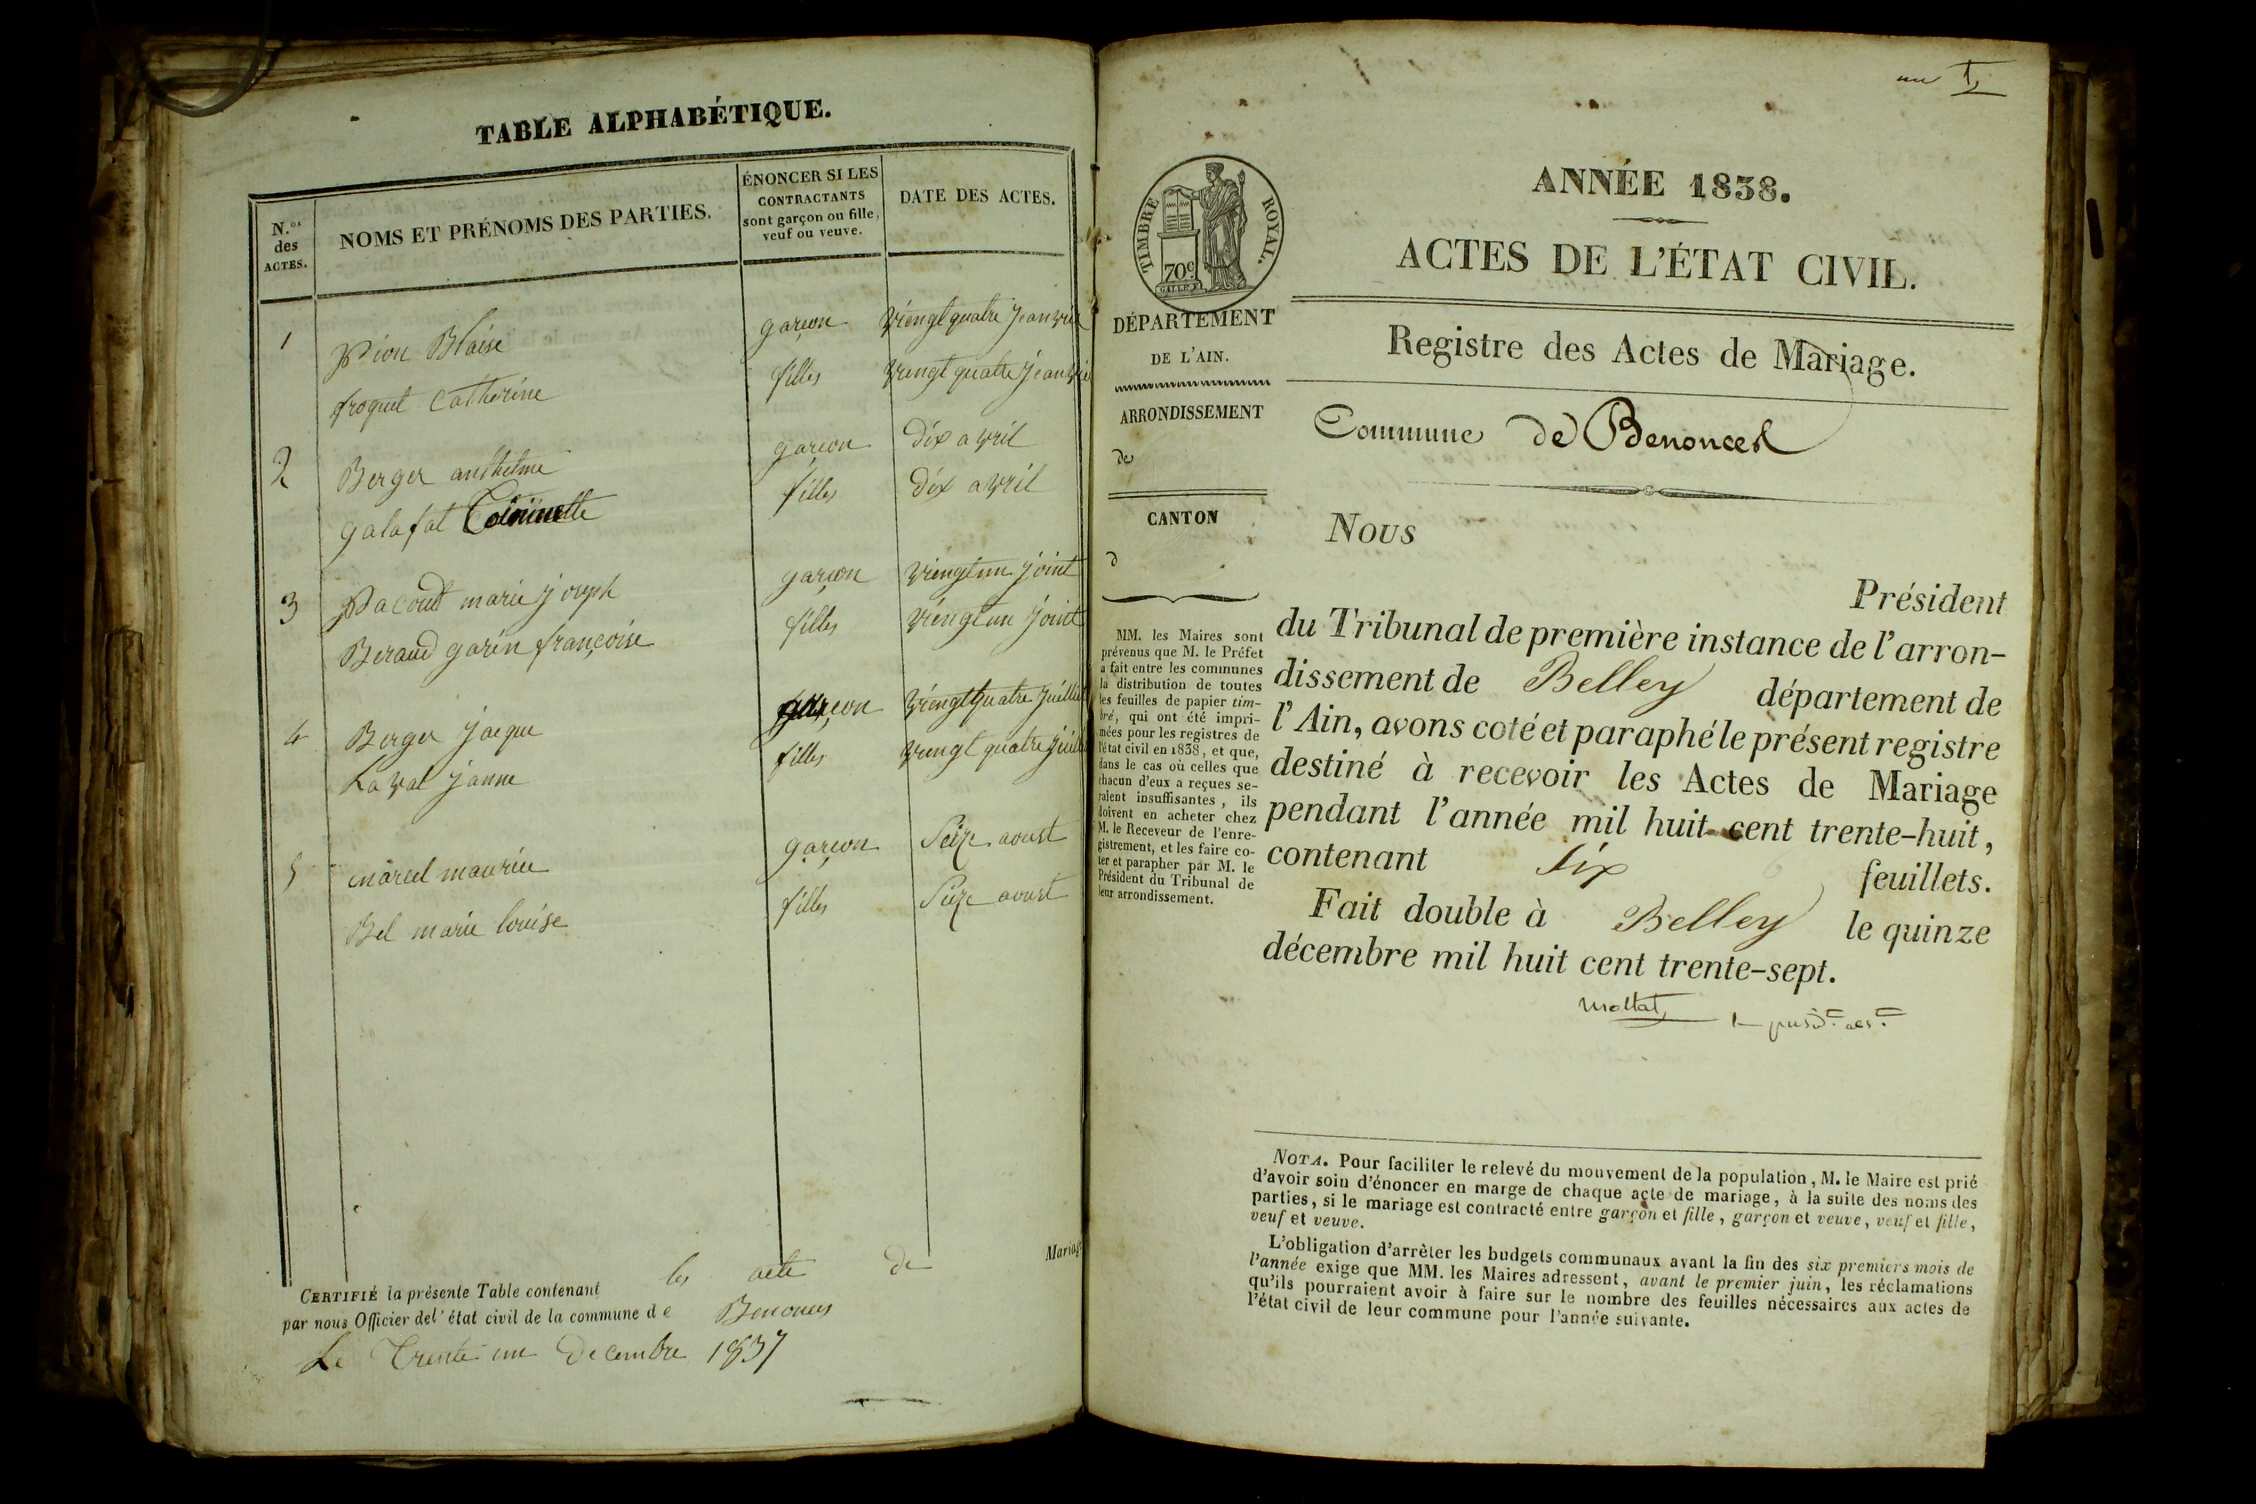 TABLE ALPHABÉTIQUE.
N.os
des
ACTES.
NOMS ET PRÉNOMS DES PARTIES.
ÉNONCER SI LES
CONTRACTANTS
sont garçon ou fille,
veuf ou veuve.
DATE DES ACTES.
1 Pion Blaise garçon viengt quatre jeanvie
froquet Catherine filles viengt quatre jeanvie
2 Berger anthelme garçon dix avril
galafat filles dix avril
3 Pacoud marie joseph garçon viengt un joint
Beraud garin françoise filles viengt un joint
4 Berger jacque garçon viengt quatre juillet
Laval janne filles viengt quatre juillet
5 marcel maurice garçon Seize aoust
Bel marie louise filles Seize aoust
CERTIFIÉ la présente Table contenant les acte de Mariage
par nous Officier de l'état civil de la commune de Benonces
Le Trente un Decembre 1837
un 1
TIMBRE ROYAL.
70c
DÉPARTEMENT
DE L'AIN.
ARRONDISSEMENT
de
CANTON
d
MM. les Maires sont
prévenus que M. le Préfet
a fait entre les communes
la distribution de toutes
les feuilles de papier tim-
bré, qui ont été impri-
mées pour les registres de
l'état civil en 1838, et que,
dans le cas où celles que
chacun d'eux a reçues se-
raient insuffisantes, ils
doivent en acheter chez
M. le Receveur de l'enre-
gistrement, et les faire co-
ter et parapher par M. le
Président du Tribunal de
leur arrondissement.
ANNÉE 1838.
ACTES DE L'ÉTAT CIVIL.
Registre des Actes de Mariage.
Commune de Benonces
Nous
Président
du Tribunal de première instance de l'arron-
dissement de Belley département de
l'Ain, avons coté et paraphé le présent registre
destiné à recevoir les Actes de Mariage
pendant l'année mil huit cent trente-huit,
contenant six feuillets.
Fait double à Belley le quinze
décembre mil huit cent trente-sept.
NOTA. Pour faciliter le relevé du mouvement de la population, M. le Maire est prié
d'avoir soin d'énoncer en marge de chaque acte de mariage, à la suite des noms des
parties, si le mariage est contracté entre garçon et fille, garçon et veuve, veuf et fille,
veuf et veuve.
L'obligation d'arrêter les budgets communaux avant la fin des six premiers mois de
l'année exige que MM. les Maires adressent, avant le premier juin, les réclamations
qu'ils pourraient avoir à faire sur le nombre des feuilles nécessaires aux actes de
l'état civil de leur commune pour l'année suivante.